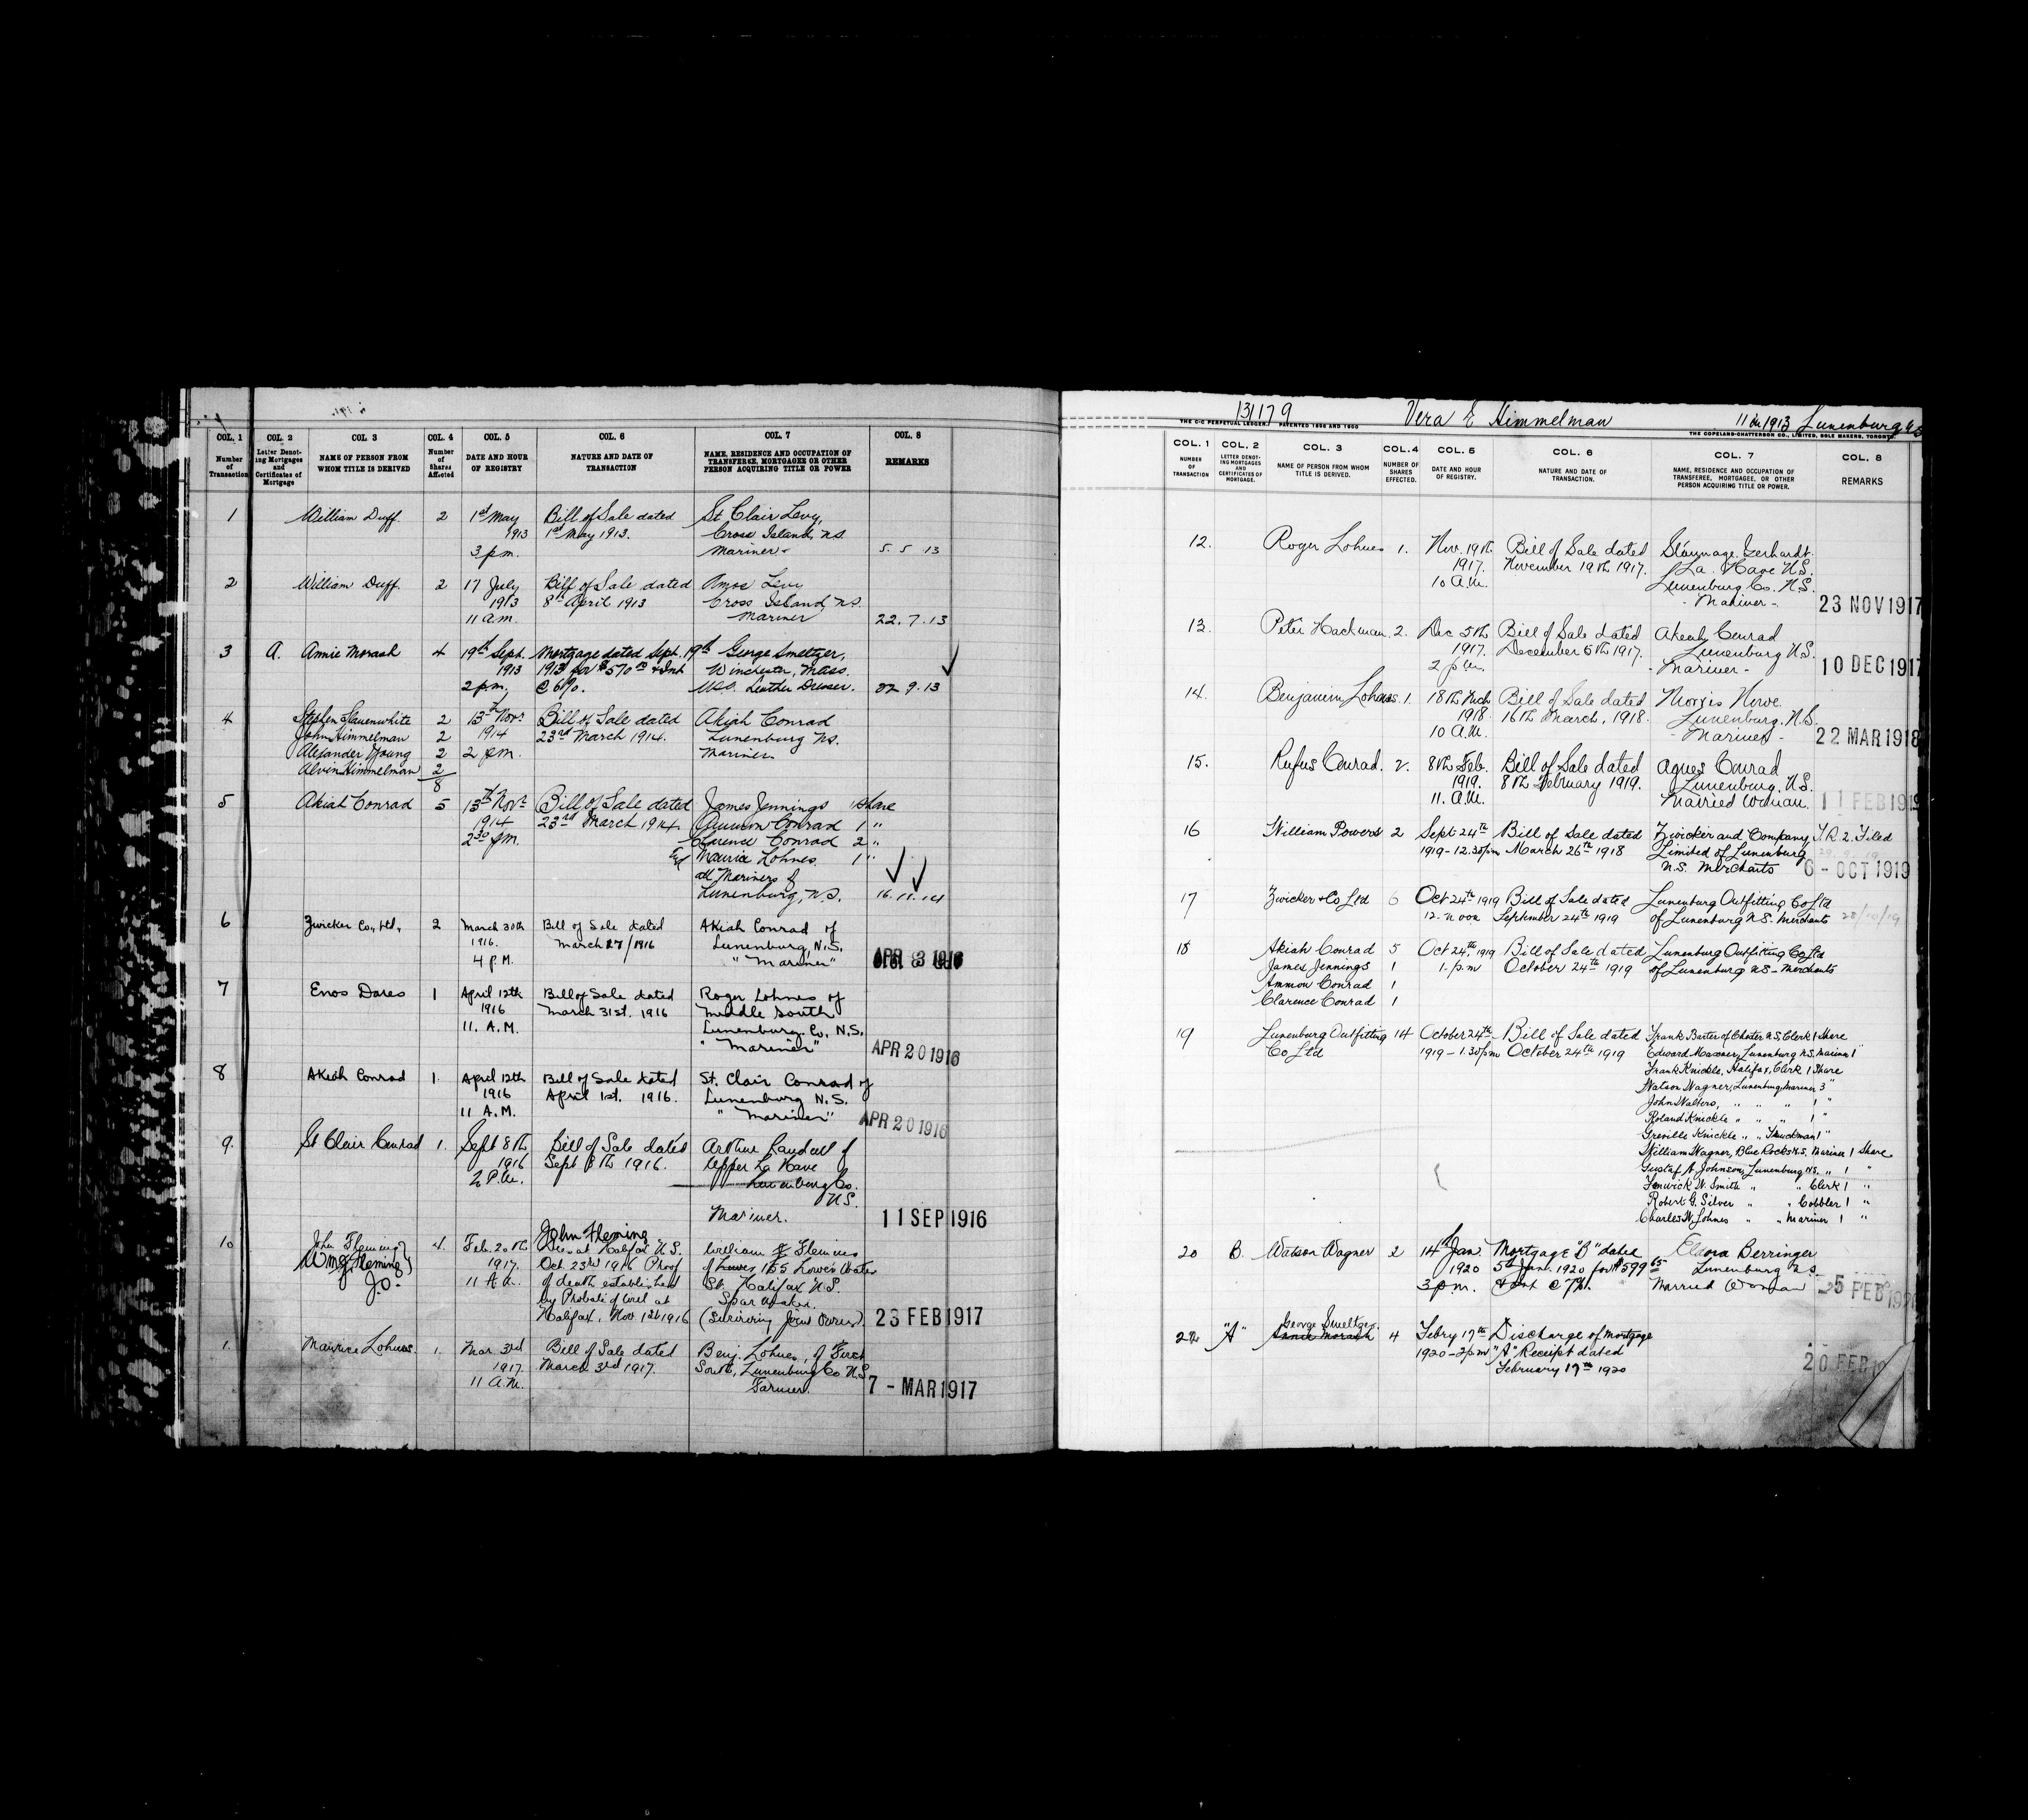 COL. 1 COL. 2 COL. 3 COL. 4 COL. 5 COL. 6 COL. 7 COL. 8
Number of Transaction
Letter Denoting Mortgages and Certificates of Mortgage
NAME OF PERSON FROM WHOM TITLE IS DERIVED
Number of Shares Affected
DATE AND HOUR OF REGISTRY
NATURE AND DATE OF TRANSACTION
NAME, RESIDENCE AND OCCUPATION OF TRANSFEREE, MORTGAGEE OR OTHER PERSON ACQUIRING TITLE OR POWER
REMARKS
1 William Duff. 2 1st May Bill of Sale dated St Clair Levy,
1913 1st May 1913. Cross Island, N.S.
3 p.m. Mariner 5. 5 13
2 William Duff. 2 17 July Bill of Sale dated Amos Levy
1913 8th April 1913 Cross Island, N.S.
11 a.m. Mariner 22.7.13
3 A. Annie Morash 4 19th Sept. Mortgage dated Sept. 19th George Smeltzer,
1913 1913 for $570 & Int Winchester, Mass.
2 p.m. @ 6%. Leather Dresser. 22 9.13
4 Stephen Slauenwhite 2 13th Novr Bill of Sale dated Akiah Conrad
John Himmelman 2 1914 23rd March 1914. Lunenburg N.S.
Alexander Young 2 2 p.m. Mariner
Alvin Himmelman 2
8
5 Akiah Conrad 5 13th Novr Bill of Sale dated James Jennings 1 share
1914 23rd March 1914. Ammon Conrad 1 "
2.30 p.m. Clarence Conrad 2 "
Maurice Lohnes 1 "
all Mariners of
Lunenburg, N.S. 16.11.14
6 Zwicker Co., Ltd., 2 March 30th Bill of Sale dated Akiah Conrad of
1916. March 27/1916 Lunenburg, N.S.
4 P.M. "Mariner" APR 3 1916
7 Enos Dares 1 April 12th Bill of Sale dated Roger Lohnes of
1916 March 31st. 1916 Middle South
11. A.M. Lunenburg. Co. N.S.
"Mariner" APR 20 1916
8 Akiah Conrad 1. April 12th Bill of Sale dated St. Clair Conrad of
1916 April 1st. 1916. Lunenburg N.S.
11 A.M. "Mariner" APR 20 1916
9. St Clair Conrad 1. Sept 8th Bill of Sale dated Arthur of
1916 Sept 8th 1916. Upper La Have
2 P.M. Lunenburg Co.
N.S.
Mariner. 11 SEP 1916
John Fleming
10 John Fleming 4. Feb. 20th Halifax N.S. William J Fleming
Wm J Fleming 1917. Oct. 23rd 1916 Proof of 155 Lower Water
J.O. 11 A.M. of death established St. Halifax N.S.
by Probate of Will at Spar maker.
Halifax, Nov 1st 1916 (Surviving Joint Owner) 23 FEB 1917
1. Maurice Lohnes. 1. Mar. 3rd Bill of Sale dated Benj. Lohnes, of First
1917. March 3rd 1917. South, Lunenburg Co N.S.
11 A.M. Farmer. 7 - MAR 1917
131179 Vera E Himmelman 11 in 1913 Lunenburg N.S
THE C-C PERPETUAL LEDGER. PATENTED 1896 AND 1900 THE COPELAND-CHATTERSON CO., LIMITED, SOLE MAKERS, TORONTO.
COL. 1 COL. 2 COL. 3 COL. 4 COL. 5 COL. 6 COL. 7 COL. 8
NUMBER OF TRANSACTION
LETTER DENOTING MORTGAGES AND CERTIFICATES OF MORTGAGE.
NAME OF PERSON FROM WHOM TITLE IS DERIVED.
NUMBER OF SHARES EFFECTED.
DATE AND HOUR OF REGISTRY.
NATURE AND DATE OF TRANSACTION.
NAME, RESIDENCE AND OCCUPATION OF TRANSFEREE, MORTGAGEE, OR OTHER PERSON ACQUIRING TITLE OR POWER.
REMARKS
12. Roger Lohnes 1. Nov. 19th Bill of Sale dated Gerhardt
1917. November 19th 1917. La Have N.S.
10 A.M. Lunenburg Co. N.S.
- Mariner - 23 NOV 1917
13. Peter Hackman 2. Dec 5th Bill of Sale dated Conrad
1917. December 5th 1917. Lunenburg N.S.
2 p.m. - Mariner - 10 DEC 1917
14. Benjamin Lohnes 1. 18th Mch Bill of Sale dated Morris Nowe
1918. 16th March, 1918. Lunenburg, N.S.
10 A.M. - Mariner - 22 MAR 1918
15. Rufus Conrad. 2. 8th Feb. Bill of Sale dated Agnes Conrad
1919. 8th February 1919. Lunenburg, N.S.
11. A.M. Married Woman. 11 FEB 1919
16 William Powers 2 Sept 24th Bill of Sale dated Zwicker and Company T.R. 2. Filed
1919 - 12.30pm March 26th 1918 Limited of Lunenburg
N.S. Merchants 6 - OCT 1919
17 Zwicker & Co Ltd 6 Oct 24th 1919 Bill of Sale dated Lunenburg Outfitting Co Ltd
12 - noon September 24th 1919 of Lunenburg N.S. Merchants 28/10/19
18 Akiah Conrad 5 Oct 24th, 1919 Bill of Sale dated Lunenburg Outfitting Co Ltd
James Jennings 1 1. p.m October 24th 1919 of Lunenburg N.S - Merchants
Ammon Conrad 1
Clarence Conrad 1
19 Lunenburg Outfitting 14 October 24th Bill of Sale dated Frank of Chester N.S. Clerk 1 Share
Co Ltd 1919 - 1.30pm October 24th 1919 Edward Lunenburg N.S. Mariner 1 "
Frank Knickle, Halifax, Clerk 1 Share
Watson Wagner, Lunenburg, Mariner 3 "
John Walters, " " " 1 "
Roland Knickle " " " 1 "
Greville Knickle " " Truckman 1 "
William Wagner, Blue Rocks N.S. Mariner 1 Share
Gustaf A. Johnson, Lunenburg N.S. " 1 "
Fenwick W. Smith " " Clerk 1 "
Robert G. Silver " " Cobbler 1 "
Charles W. Lohnes " " Mariner 1 "
20 B. Watson Wagner 2 14th Jan. Mortgage "B" dated Berringer
1920 5th Jan. 1920 for $599 65 Lunenburg N.S
3 p.m. & int @ 7%. Married Woman 25 FEB
George Smeltzer
"A" Annie Morash 4 Febry 17th Discharge of Mortgage
1920 - 2pm "A" Receipt dated
February 17th 1920 20 FEB